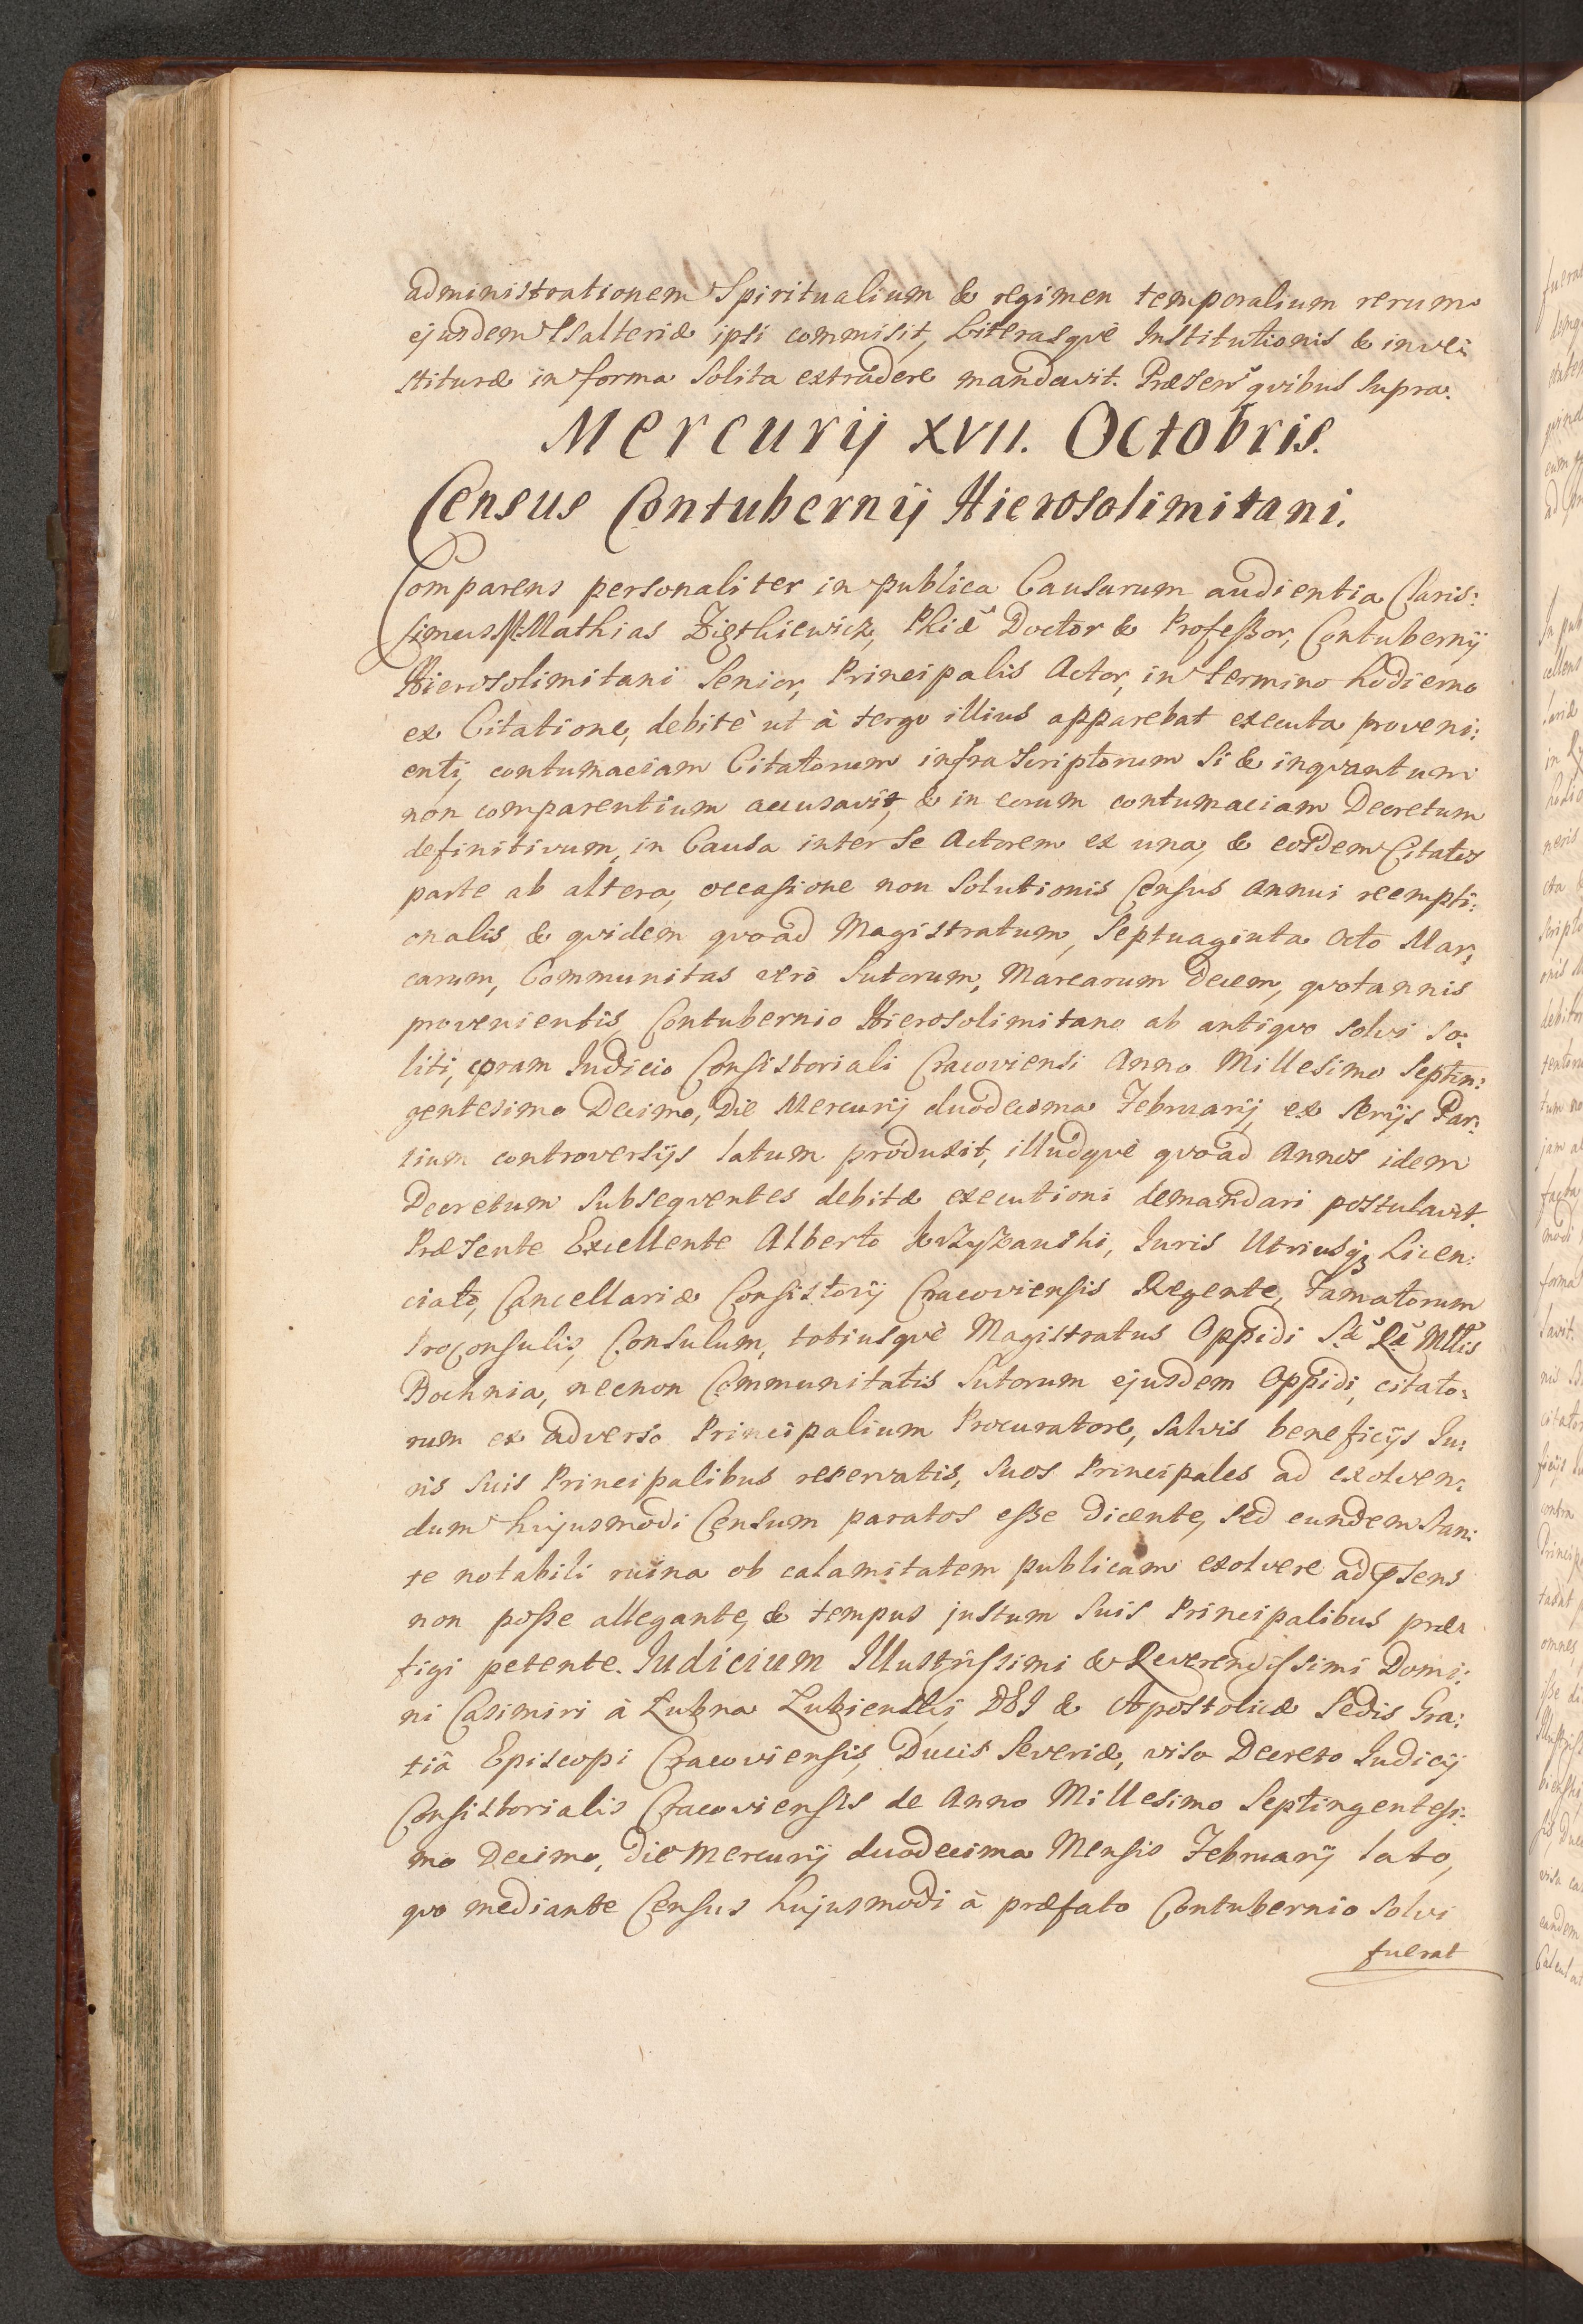 administrationem Spiritualium & regimen temporalium rerum
ejusdem Psalteriæ ipsi commisit, Literasqvè Institutionis & inve:
stituræ in forma solita extradere mandavit. Præsen̄ qvibus supra.
Mercurij XVII. Octobris.
Census Contubernij Hierosolimitani.
Comparens personaliter in publica Causarum audientia Claris:
simus M. Mathias Zigthiewicz, Phiæ Doctor & Profeßor, Contubernij
Hierosolimitani Senior, Principalis Actor, in termino hodierno
ex Citatione, debitè ut à tergo illius apparebat executa proveni:
enti, contumaciam Citatorum infra scriptorum si & inqvantum
non comparentium accusavit, & in eorum contumaciam Decretum
definitivum, in Causa inter se Actorem ex una, & eosdem Citatos
parte ab altera, occasione non solutionis Census annui reempti:
onalis & qvidem qvoad Magistratum, Septuaginta octo Mar:
carum, Communitas verò Sutorum, Marcarum Decem, qvotannis
provenientis, Contubernio Hierosolimitano ab antiqvo solvi so:
liti, coram Iudicio Consistoriali Cracoviensi Anno Millesimo Septin:
gentesimo Decimo, Die Mercurij duodecima Februarij, ex serijs Par:
tium controversijs latum produxit, illudqvè qvoad Annos idem
Decretum subseqventes debitæ executioni demandari postulavit.
Præsente Excellente Alberto Krzyżanski, Iuris Utriusqz Licen:
ciato, Cancellariæ Consistorij Cracoviensis Regente, Famatorum
Proconsulis, Consulum, totiusqvè Magistratus Oppidi Sæ Ræ Mttis
Bochnia, necnon Communitatis Sutorum ejusdem Oppidi, citato:
rum ex adverso Principalium Procuratore, salvis beneficijs Iu:
ris suis Principalibus reservatis, suos Principales ad exolven:
dum hujusmodi Censum paratos eße dicente, sed eundem stan:
te notabili ruina ob calamitatem publicam exolvere ad p̄sens
non poße allegante, & tempus justum suis Principalibus præ:
figi petente. Iudicium Illustrissimi & Reverendissimi Domi:
ni Casimiri à Łubna Łubienski, DEI & Apostolicæ Sedis Gra:
tiâ Episcopi Cracoviensis, Ducis Severiæ, viso Decreto Iudicij
Consistorialis Cracoviensis de Anno Millesimo Septingentesi:
mo Decimo, Die Mercurij duodecima Mensis Februarij lato,
qvo mediante Census hujusmodi à præfato Contubernio solvi
fuerat